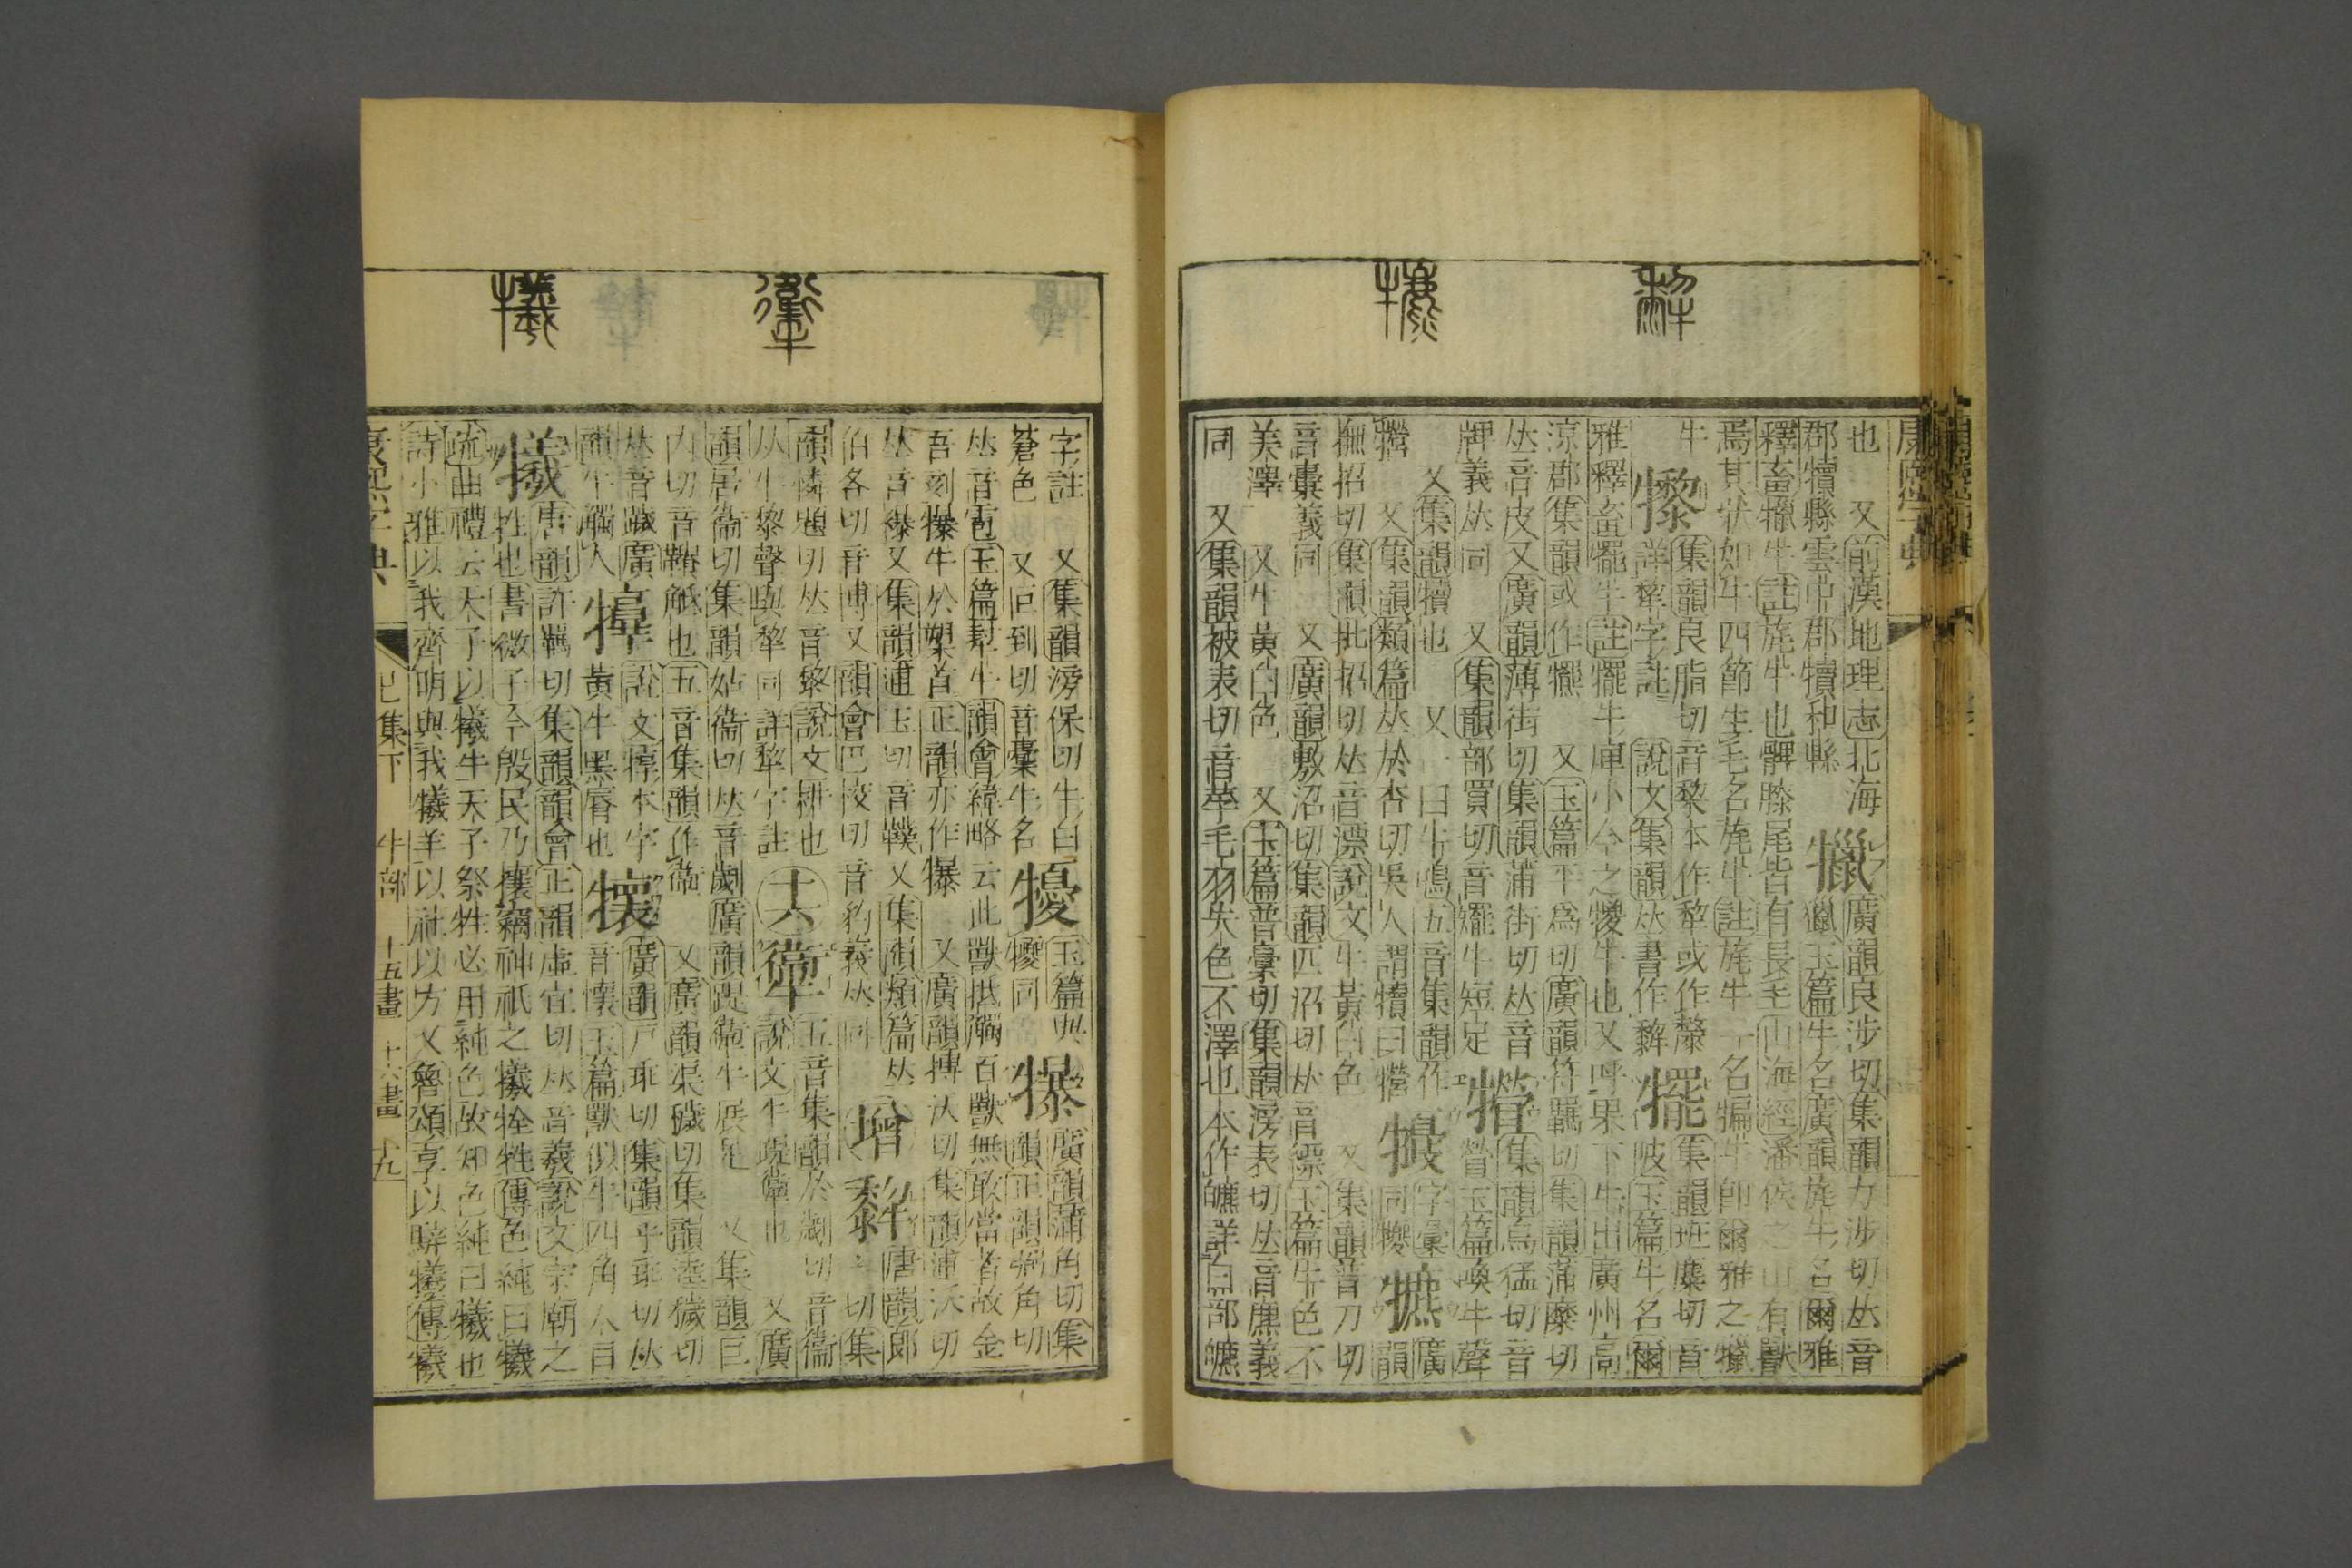 也　又前漢地理志北海
郡犢縣雲中郡犢和縣
犣廣韻良涉切集韻力涉切𠀤音
獵玉篇牛名廣韻旄牛名爾雅
釋畜犣牛註旄牛也髀膝尾皆有長毛山海經潘侯之山有獸
焉其狀如牛四節生毛名旄牛註旄牛一名犏牛卽爾雅之犣
牛
犂集韻良脂切音棃本作犂或作犛
詳犂字註　說文集韻𠀤書作𤛿
犤集韻班麋切音
陂玉篇牛名爾
雅釋畜犤牛註犤牛庳小今之㹎牛也又呼果下牛出廣州高
涼郡集韻或作犤　又玉篇平爲切廣韻符羈切集韻蒲糜切
𠀤音皮又廣韻薄街切集韻蒲街切𠀤音
牌義𠀤同　又集韻部買切音㔥牛短足
集韻烏猛切音
玉篇喚牛聲
又集韻犢也　又一曰牛鳴五音集韻作
又集韻類篇𠀤於杏切吳人謂犢曰
字彙
同
廣韻
撫招切集韻批招切𠀤音漂說文牛黃白色　又集韻普刀切
音橐義同　又廣韻敷沼切集韻匹沼切𠀤音縹玉篇牛色不
美澤　又牛黃白色　又玉篇普槀切集韻滂表切𠀤音麃義
同　又集韻被表切音莩毛羽失色不澤也本作皫詳白部皫
字註　又集韻滂保切牛白
蒼色　又巨到切音櫜牛名
玉篇與
同
犦廣韻蒲角切集
韻正韻弼角切
𠀤音雹玉篇犎牛韻會緯略云此獸抵觸百獸無敢當者故金
吾刻犦牛於槊首正韻亦作犦　又廣韻搏沃切集韻逋沃切
𠀤音襮又集韻逋玉切音轐又集韻類篇𠀤
伯各切音博又韻會巴校切音豹義𠀤同
增
唐韻郎
切集
韻憐題切𠀤音黎說文耕也
从牛黎聲與犂同詳犂字註
十六
五音集韻於劌切音衞
說文牛踶躛也　又廣
韻居衞切集韻姑衞切𠀤音劌廣韻踶躛牛展足　又集韻巨
內切音䩭觝也五音集韻作　　又廣韻渠穢切集韻
𠀤音　廣
韻牛觸人
說文㹊本字
黃牛黑脣也
廣韻戶乖切集韻乎乖切𠀤
音懷玉篇獸似牛四角人目
犧唐韻許羈切集韻韻會正韻虛宜切𠀤音羲說文宗廟之
牲也書微子今殷民乃攘竊神祇之犧牷牲傳色純曰犧
疏曲禮云天子以犧牛天子祭牲必用純色故知色純曰犧也
詩小雅以我齊明與我犧羊以社以方又魯頌享以騂犧傳犧
康熙字典　巳集下　牛部　十五畫　十六畫